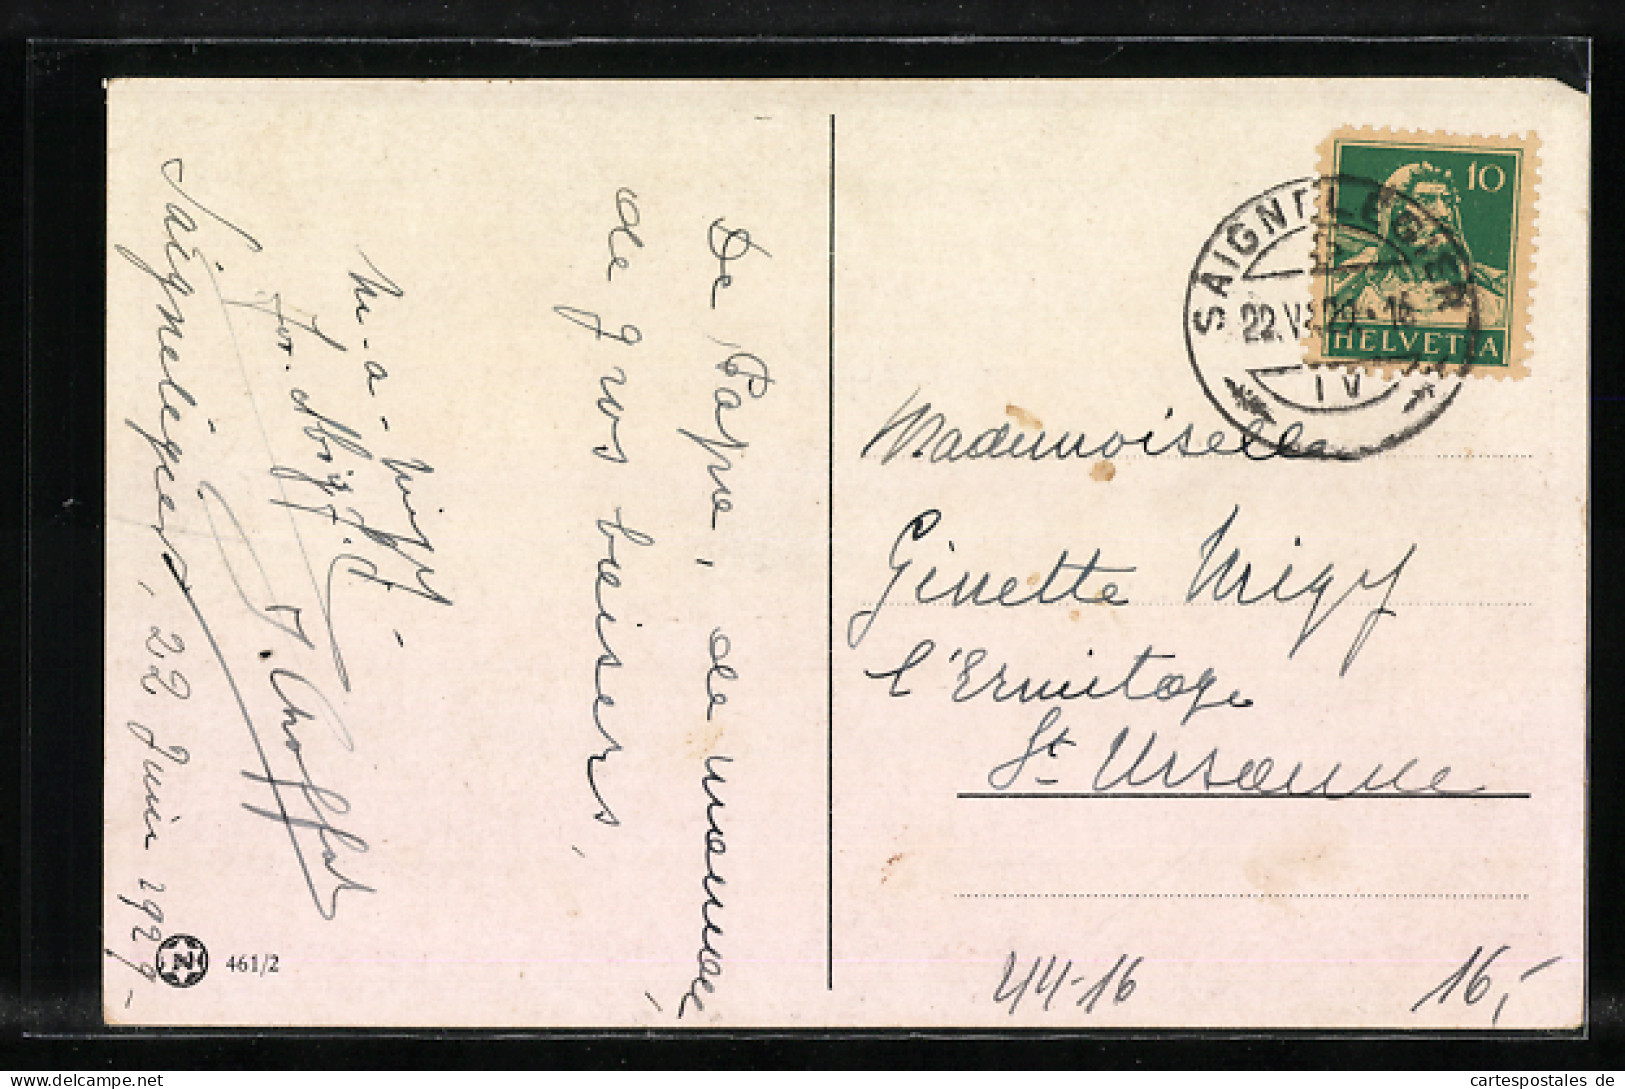 De Papa, de maman,
de gros baisers,
Saignelégier, 22 Juin 1929.-
J. Choffat
461/2
SAIGNELEGIER
22.VI.29.-16
IV
10
HELVETIA
Mademoiselle
Ginette Migy
l'Ermitage
St. Ursanne
44-16
16,-
cartespostales de